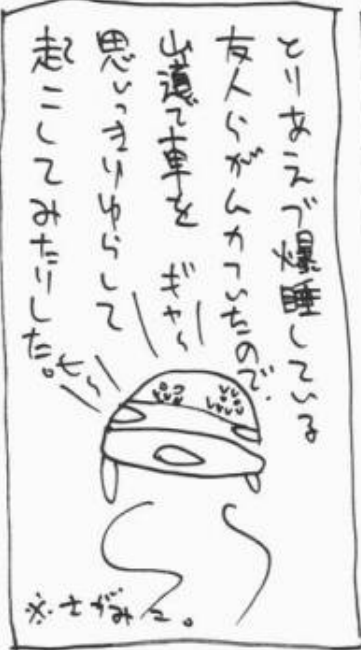 とりあえず爆睡している
友人らがムカついたので、
山道で車を
思いっきりゆらして
起こしてみたりした。
ギャ〜
も〜
※さがみこ。